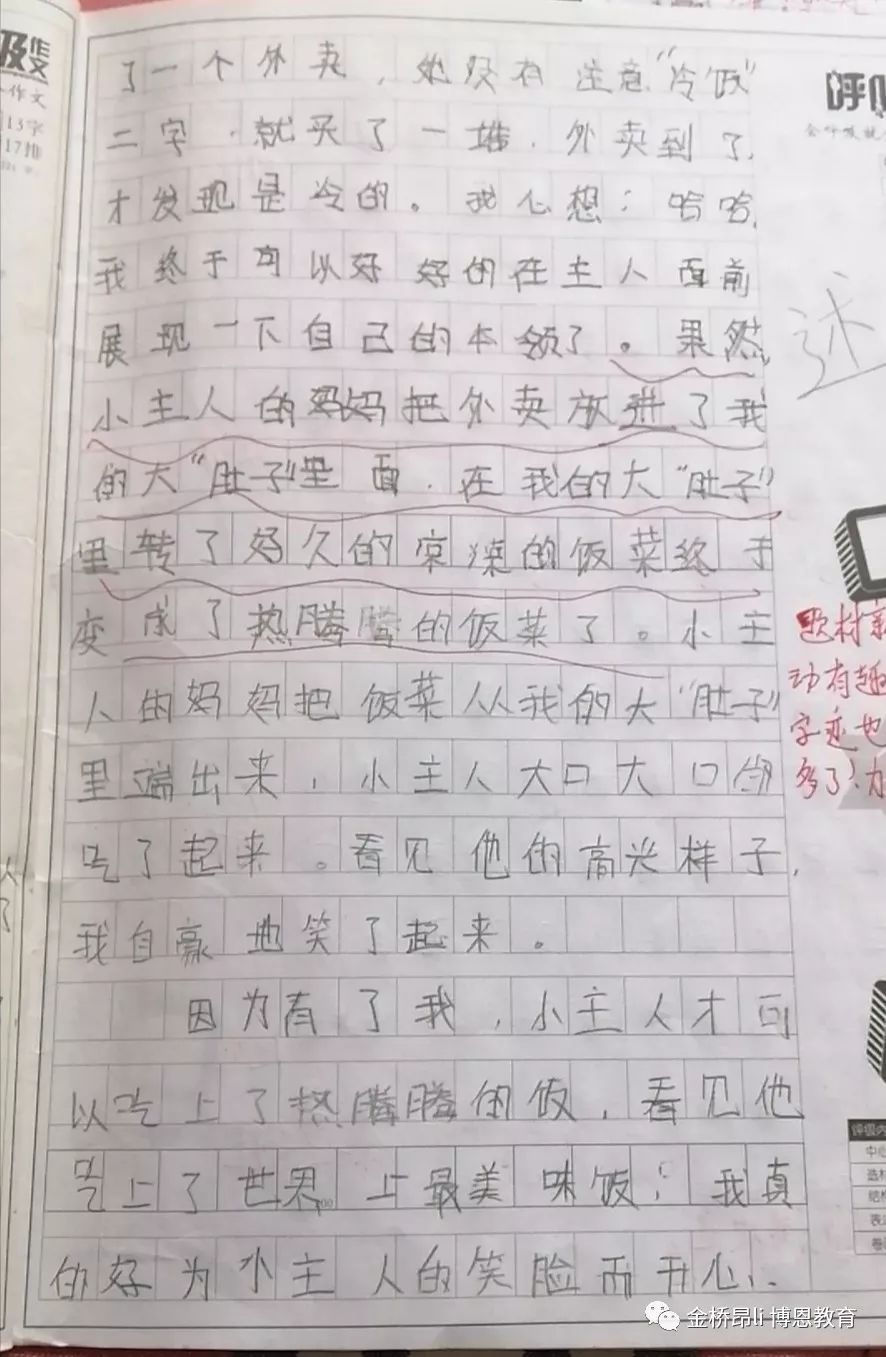 了一个外卖，她没有注意“冷饭”
二字，就买了一堆，外卖到了，
才发现是冷的。我心想：哈哈，
我终于可以好好的在主人面前
展现一下自己的本领了。果然，
小主人的妈妈把外卖放进了我
的大“肚子”里面，在我的大“肚子”
里转了好久的凉凉的饭菜终于
变成了热腾腾的饭菜了。小主
人的妈妈把饭菜从我的大“肚子”
里端出来，小主人大口大口的
吃了起来。看见他的高兴样子，
我自豪地笑了起来。
因为有了我，小主人才可
以吃上了热腾腾的饭，看见他
吃上了世界上最美味饭；我真
的好为小主人的笑脸而开心..
级作文
作文
13字
17排
呼
述
题材
动有趣
字迹也
多了
评级内
中心
选材
结构
表达
卷面
金桥昂li 博恩教育